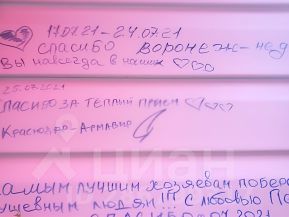 17.07.21-24.07.21
СПАСИБО ВОРОНЕЖ-
ВЫ навсегда в наших
25.07.2021
СПАСИБО ЗА ТЕПЛЫЙ ПРИЕМ
КРАСНОДАР-АРМАВИР
циан
самым лучшим хозяевам
душевным людям!!! С любовью
СПАСИБО